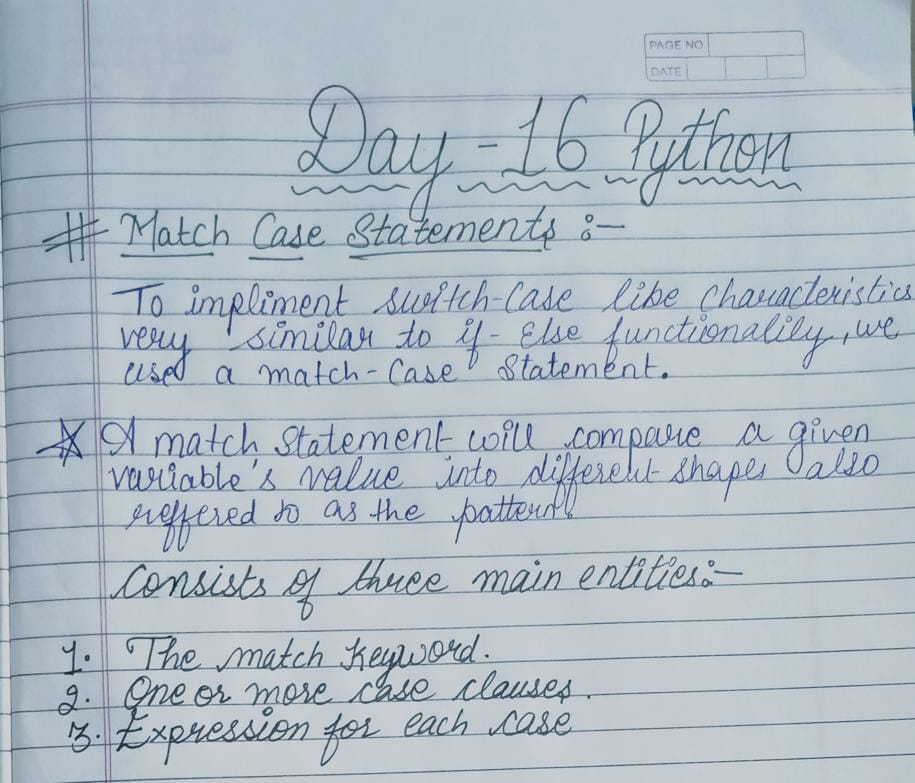 PAGE NO
DATE
Day-16 Python
# Match Case Statements :-
To impliment switch-Case like characteristics
very similar to if-Else functionality, we
used a match-Case Statement.
☆ A match Statement will compare a given
variable's value into different shapes also
reffered to as the pattern.
Consists of three main entities:-
1. The match keyword.
2. One or more case clauses.
3. Expression for each case